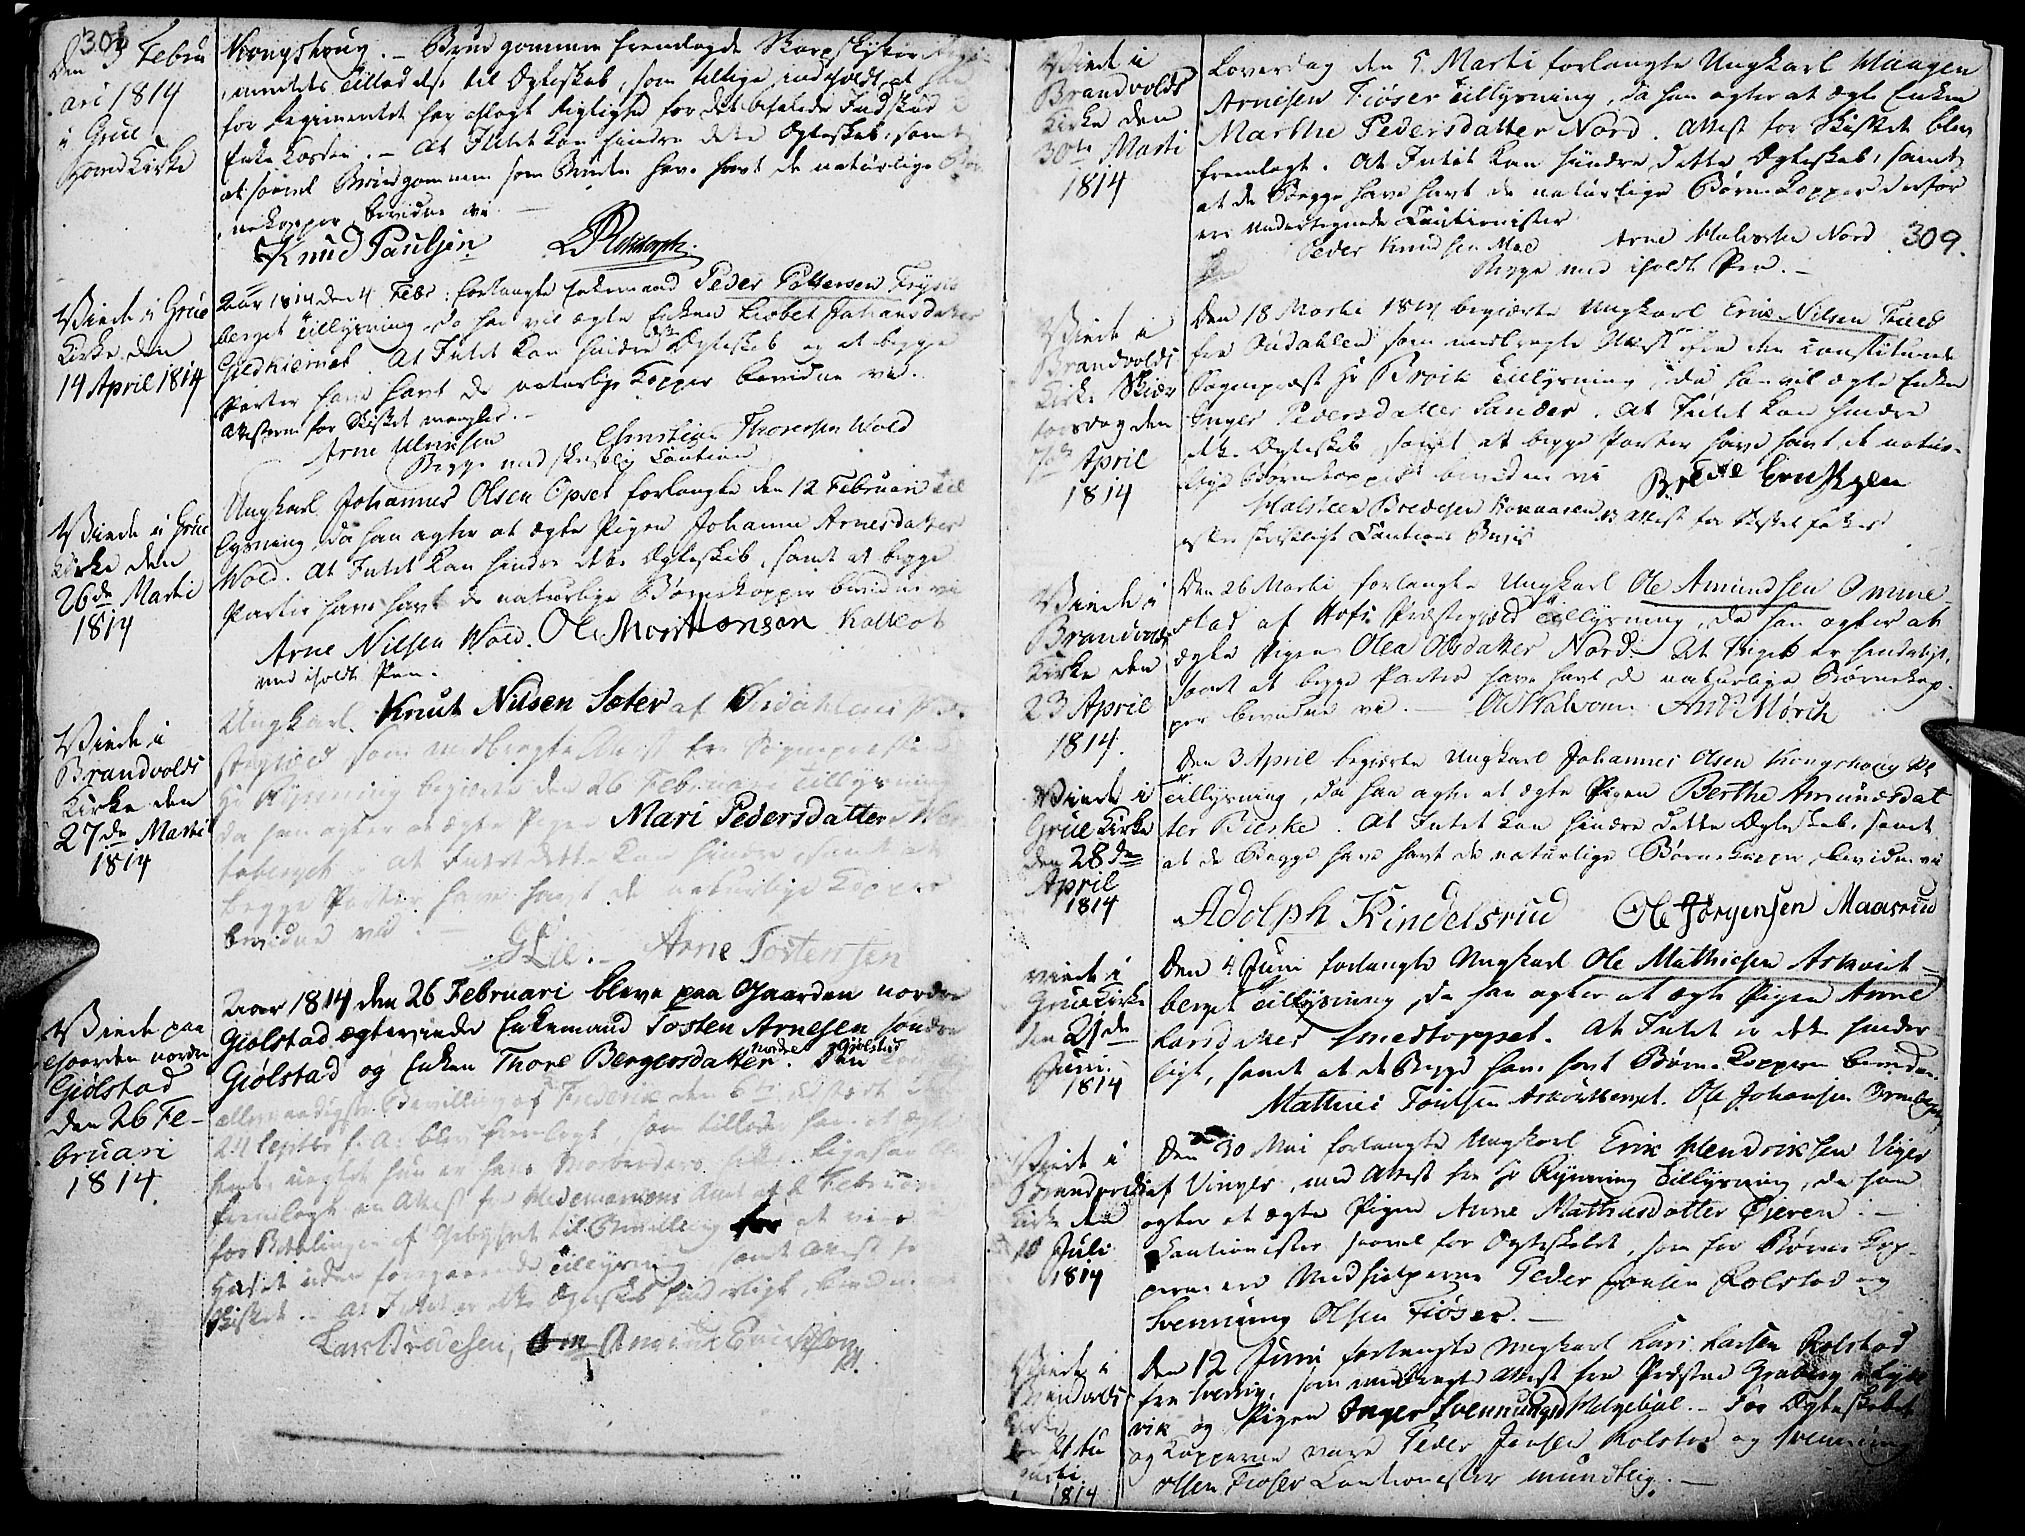 308
Den 3 Febru
ari 1814
i Grue
Hoved Kirke
Kongshoug. – Brudgommen fremlagde Skarpskytter Regi-
mentets Tilladelse til Ægteskab, som tillige indeholdt at han
for Regimentet har aflagt Rigtighed for det befalede Indskud i
Enke Kassen. – At Intet kan hindre dette Ægteskab, samt
at saavel Brudgommen som Bruden have havt de naturlige Bør-
nekopper, bevidne vi
Knud Paulsen.
Viede i Grue
Kirke den
14 April 1814
Aar 1814 den 4 Febr: forlangte Enkemand Peder Pettersen Frysis
berget Tillysning, da han vil ægte Enken Lisbet Johansdatter
Gildkiernet. At Intet kan hindre dette Ægteskab og at begge
Parter have havt de naturlige Kopper bevidne vi.
Attesterne for Skiftet mangler. –
Arne Ulrichsen Christian Thoresen Wold
Begge med skriftlig Caution
Viede i Grue
Kirke den
26de Marti
1814
Ungkarl Johannes Olsen Opset forlangte den 12 Februari Til
lysning, da han agter at ægte Pigen Johanne Arnesdatter
Wold. At Intet kan hindre dette Ægteskab, samt at begge
Parter have havt de naturlige Børnekopper bevidne vi
Arne Nilsen Wold. Ole Mortenson
med iholdt Pen.
Viede i
Brandvolds
Kirke den
27de Marti
1814
Ungkarl Knut Nilsen Sæter af Præ-
stegield som medbragte Attest fra Sognepræsten
Hr Rynning begierte den 26 Februari Tillysning
da han agter at ægte Pigen Mari Pedersdatter
taberget. At Intet dette kan hindre samt at
begge Parter have havt de naturlige Kopper
bevidne vi. –
GLie. – Arne Tostensen
Viede paa
Gaarden nordre
Giølstad
den 26 Fe-
bruari
1814.
Aar 1814 den 26 Februari bleve paa Gaarden nordre
Giølstad ægteviede Enkemand Tosten Arnesen søndre
Giølstad og Enken Thore Bergersdatter nordre Giølstad. Den
allernaadigste Bevilling af Frederik den 6te udstædt
24 Septbr f. A: blev fremlagt, som tillader ham at ægte
hende uagtet hun er hans Morbroders Enke. Ligesaa blev
fremlagt en Attest fra Hedemarkens Amt af Februari
for Betalingen af Gebyhret til Bevilling for at vies i
Huset uden foregaaende Tillysning samt Attest for
Skiftet. – At Intet er dette Ægteskab hinderligt, bevidne
Lars Brede­sen, Amund Erichsen
Viede i
Brandvolds
Kirke den
30te Marti
1814
Løverdag den 5. Marti forlangte Ungkarl Maagen
Arnesen Fiøser Tillysning, da han agter at ægte Enken
Marthe Pedersdatter Nord. Attest for Skiftet blev
fremlagt. At Intet kan hindre dette Ægteskab, samt
at de Begge have havt de naturlige Børne Kopper derfor
ere undertegnede Cautionister
Peder Knudsen Moe Arne Nord
Begge med iholdt Pen. –
309.
Viede i
Brandvolds
Kirke Skier
torsdag den
7de April
1814
Den 18 Marti 1814 begierte Ungkarl Eric Nilsen
fra som medbragte Attest fra den constituerte
Sognepræst Hr Broch Tillysning, da han vil ægte Enken
Inger Pedersdatter Sander. At Intet kan hindre
dette Ægteskab, samt at begge Parter have havt de natur-
lige Børnekopper bevidne vi
Halsteen Bredesen Attest for Skiftet fulgte
efter skriftligt Cautions Beviis
Viede i
Brandvolds
Kirke den
23 April
1814.
Den 26 Marti forlangte Ungkarl Ole Amundsen Omme-
stad af Hofs Præstegield Tillysning, da han agter at
ægte Pigen Olea Olsdatter Nord. At Intet er hinderligt,
samt at begge Parter have havt de naturlige Børnekop-
per bevidne vi. – And: Mørch
Viede i
Grue Kirke
den 28de
April
1814
Den 3 April begierte Ungkarl Johannes Olsen Kongshoug
Tillysning, da han agter at ægte Pigen Berthe Amundsdat
ter Bieske. At Intet kan hindre dette Ægteskab, samt
at de Begge have havt de naturlige Børnekopper, bevidne vi
Adolph Kindelsrud Ole Jørgensen Maasrud
Viede i
Grue Kirke
den 21de
Juni
1814
Den 4 Juni forlangte Ungkarl Ole Mathiesen Askout-
berget Tillysning, da han agter at ægte Pigen Anne
Larsdatter Smedtorpet. At Intet er dette hinder-
ligt, samt at de Begge have havt Børne Kopperne bevidne
Mathies Askoutberget. Ole Johansen
Viede i
Brandvolds
Kirke den
10 Juli
1814
Den 30 Mai forlangte Ungkarl Erik Hendriksen Viger
af Vinger, med Attest fra Hr Rynning Tillysning, da han
agter at ægte Pigen Anne Mathiesdatter Øieren. –
Cautionister saavel for Ægteskabet, som for Børne Kop-
perne ere Medhielperne Peder Jonsen Rolstad og
Svennung Olsen Fiøser. –
Viede i
Brandvolds
1814
Den 12 Juni forlangte Ungkarl Lars Larsen Rolstad
fra Sverrig, som medbragte Attest fra Præsten Graberg i
vik og Pigen Inger Svennungsd Helgebøl. – For Ægteskabet
og Kopperne vare Peder Jonsen Rolstad og Svennung
Olsen Fiøser Cautionister mundtlig. –